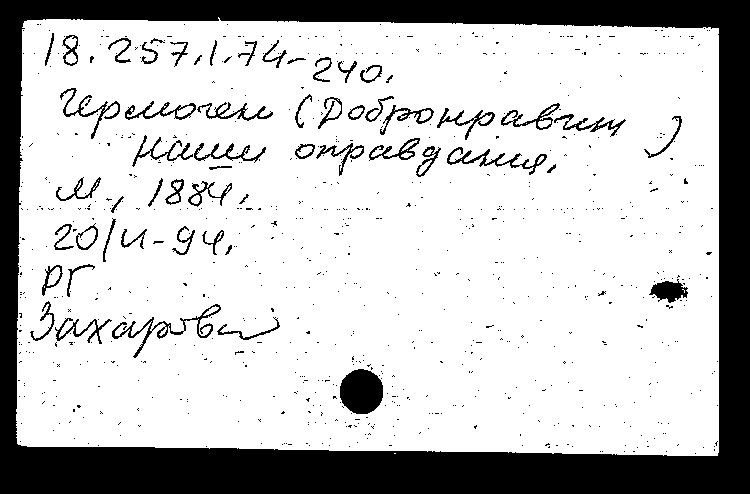 18.257.1.74-240.
Гермоген (Добронравин)
Наши оправдания.
М, 1884.
20/VI-94.
РГ
Захарова